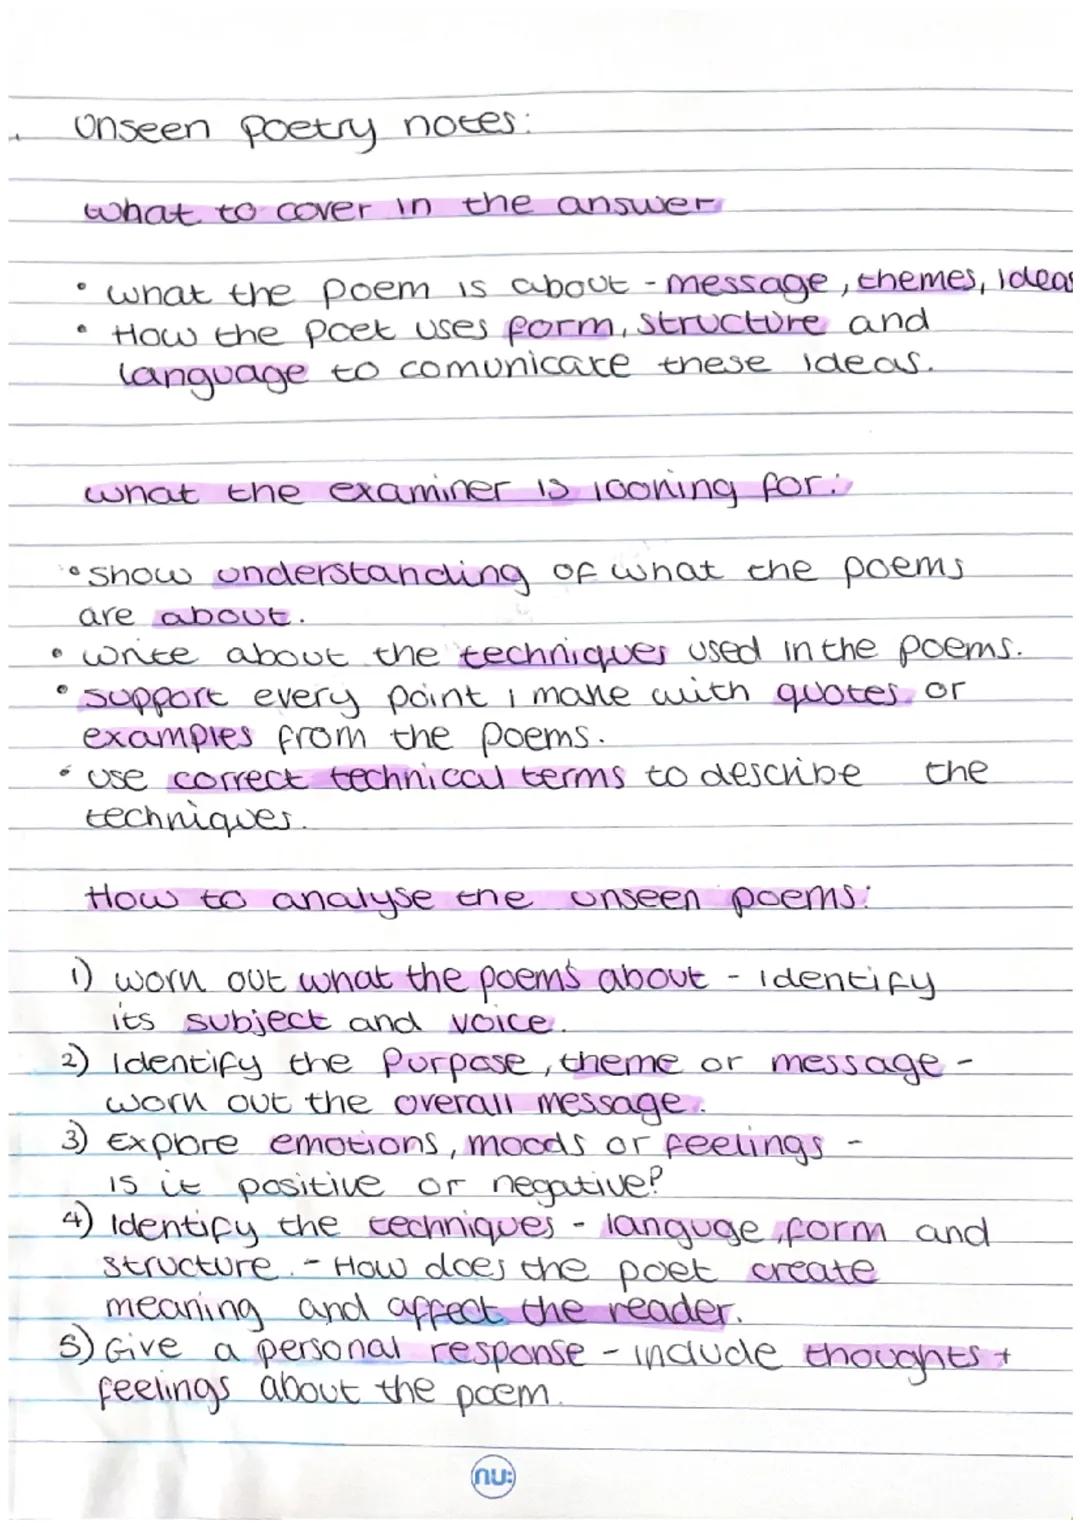 Unseen poetry notes:
what to cover in the answer
• what the poem is about - message, themes, ideas
• How the poet uses form, structure and
language to comunicate these ideas.
what the examiner is looking for:
• show understanding of what the poems
are about.
• write about the techniques used in the poems.
• support every point i make with quotes or
examples from the poems.
• use correct technical terms to describe the
techniques.
How to analyse the unseen poems:
1) work out what the poem's about - identify
its subject and voice.
2) Identify the Purpose, theme or message -
work out the overall message.
3) Explore emotions, moods or feelings -
is it positive or negative?
4) Identify the techniques - languge, form and
structure. - How does the poet create
meaning and affect the reader.
5) Give a personal response - include thoughts +
feelings about the poem.
nu: